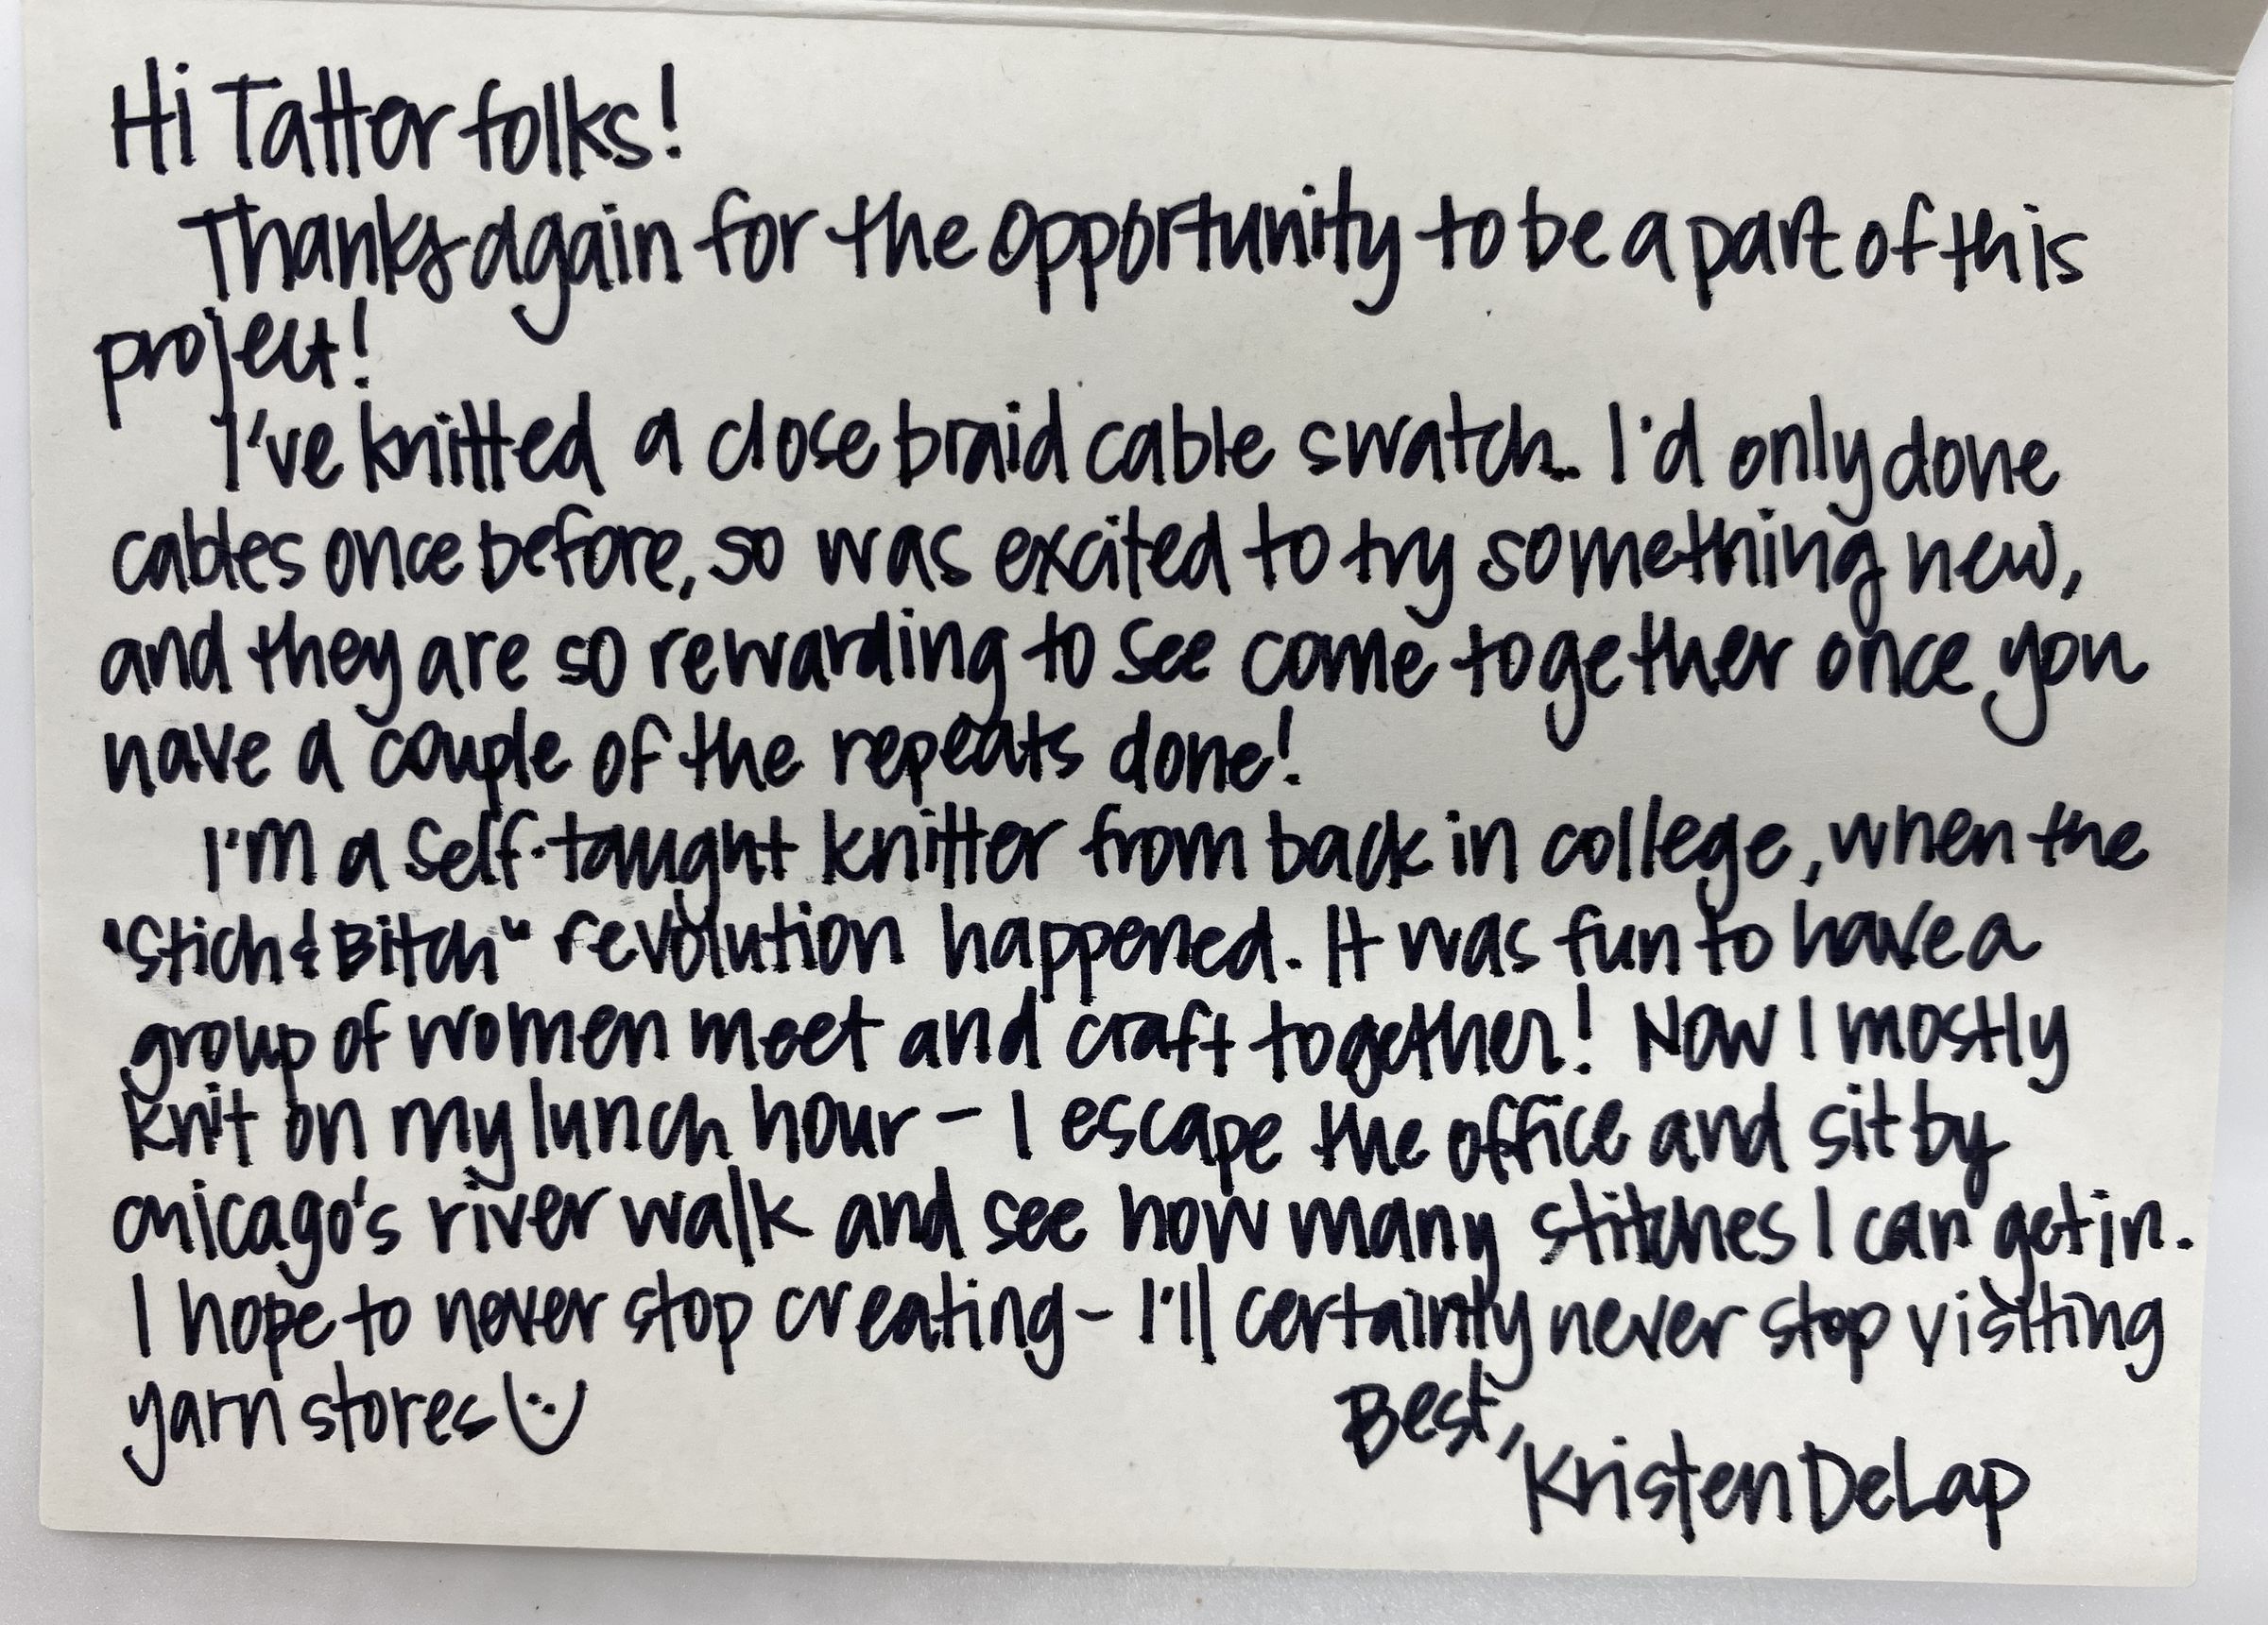 Hi Tatter folks!
Thanks again for the opportunity to be a part of this
project!
I've knitted a close braid cable swatch. I'd only done
cables once before, so was excited to try something new,
and they are so rewarding to see come together once you
have a couple of the repeats done!
I'm a self-taught knitter from back in college, when the
"Stich & Bitch" revolution happened. It was fun to have a
group of women meet and craft together! Now I mostly
knit on my lunch hour - I escape the office and sit by
Chicago's river walk and see how many stitches I can get in.
I hope to never stop creating - I'll certainly never stop visiting
yarn stores :)
Best,
Kristen DeLap